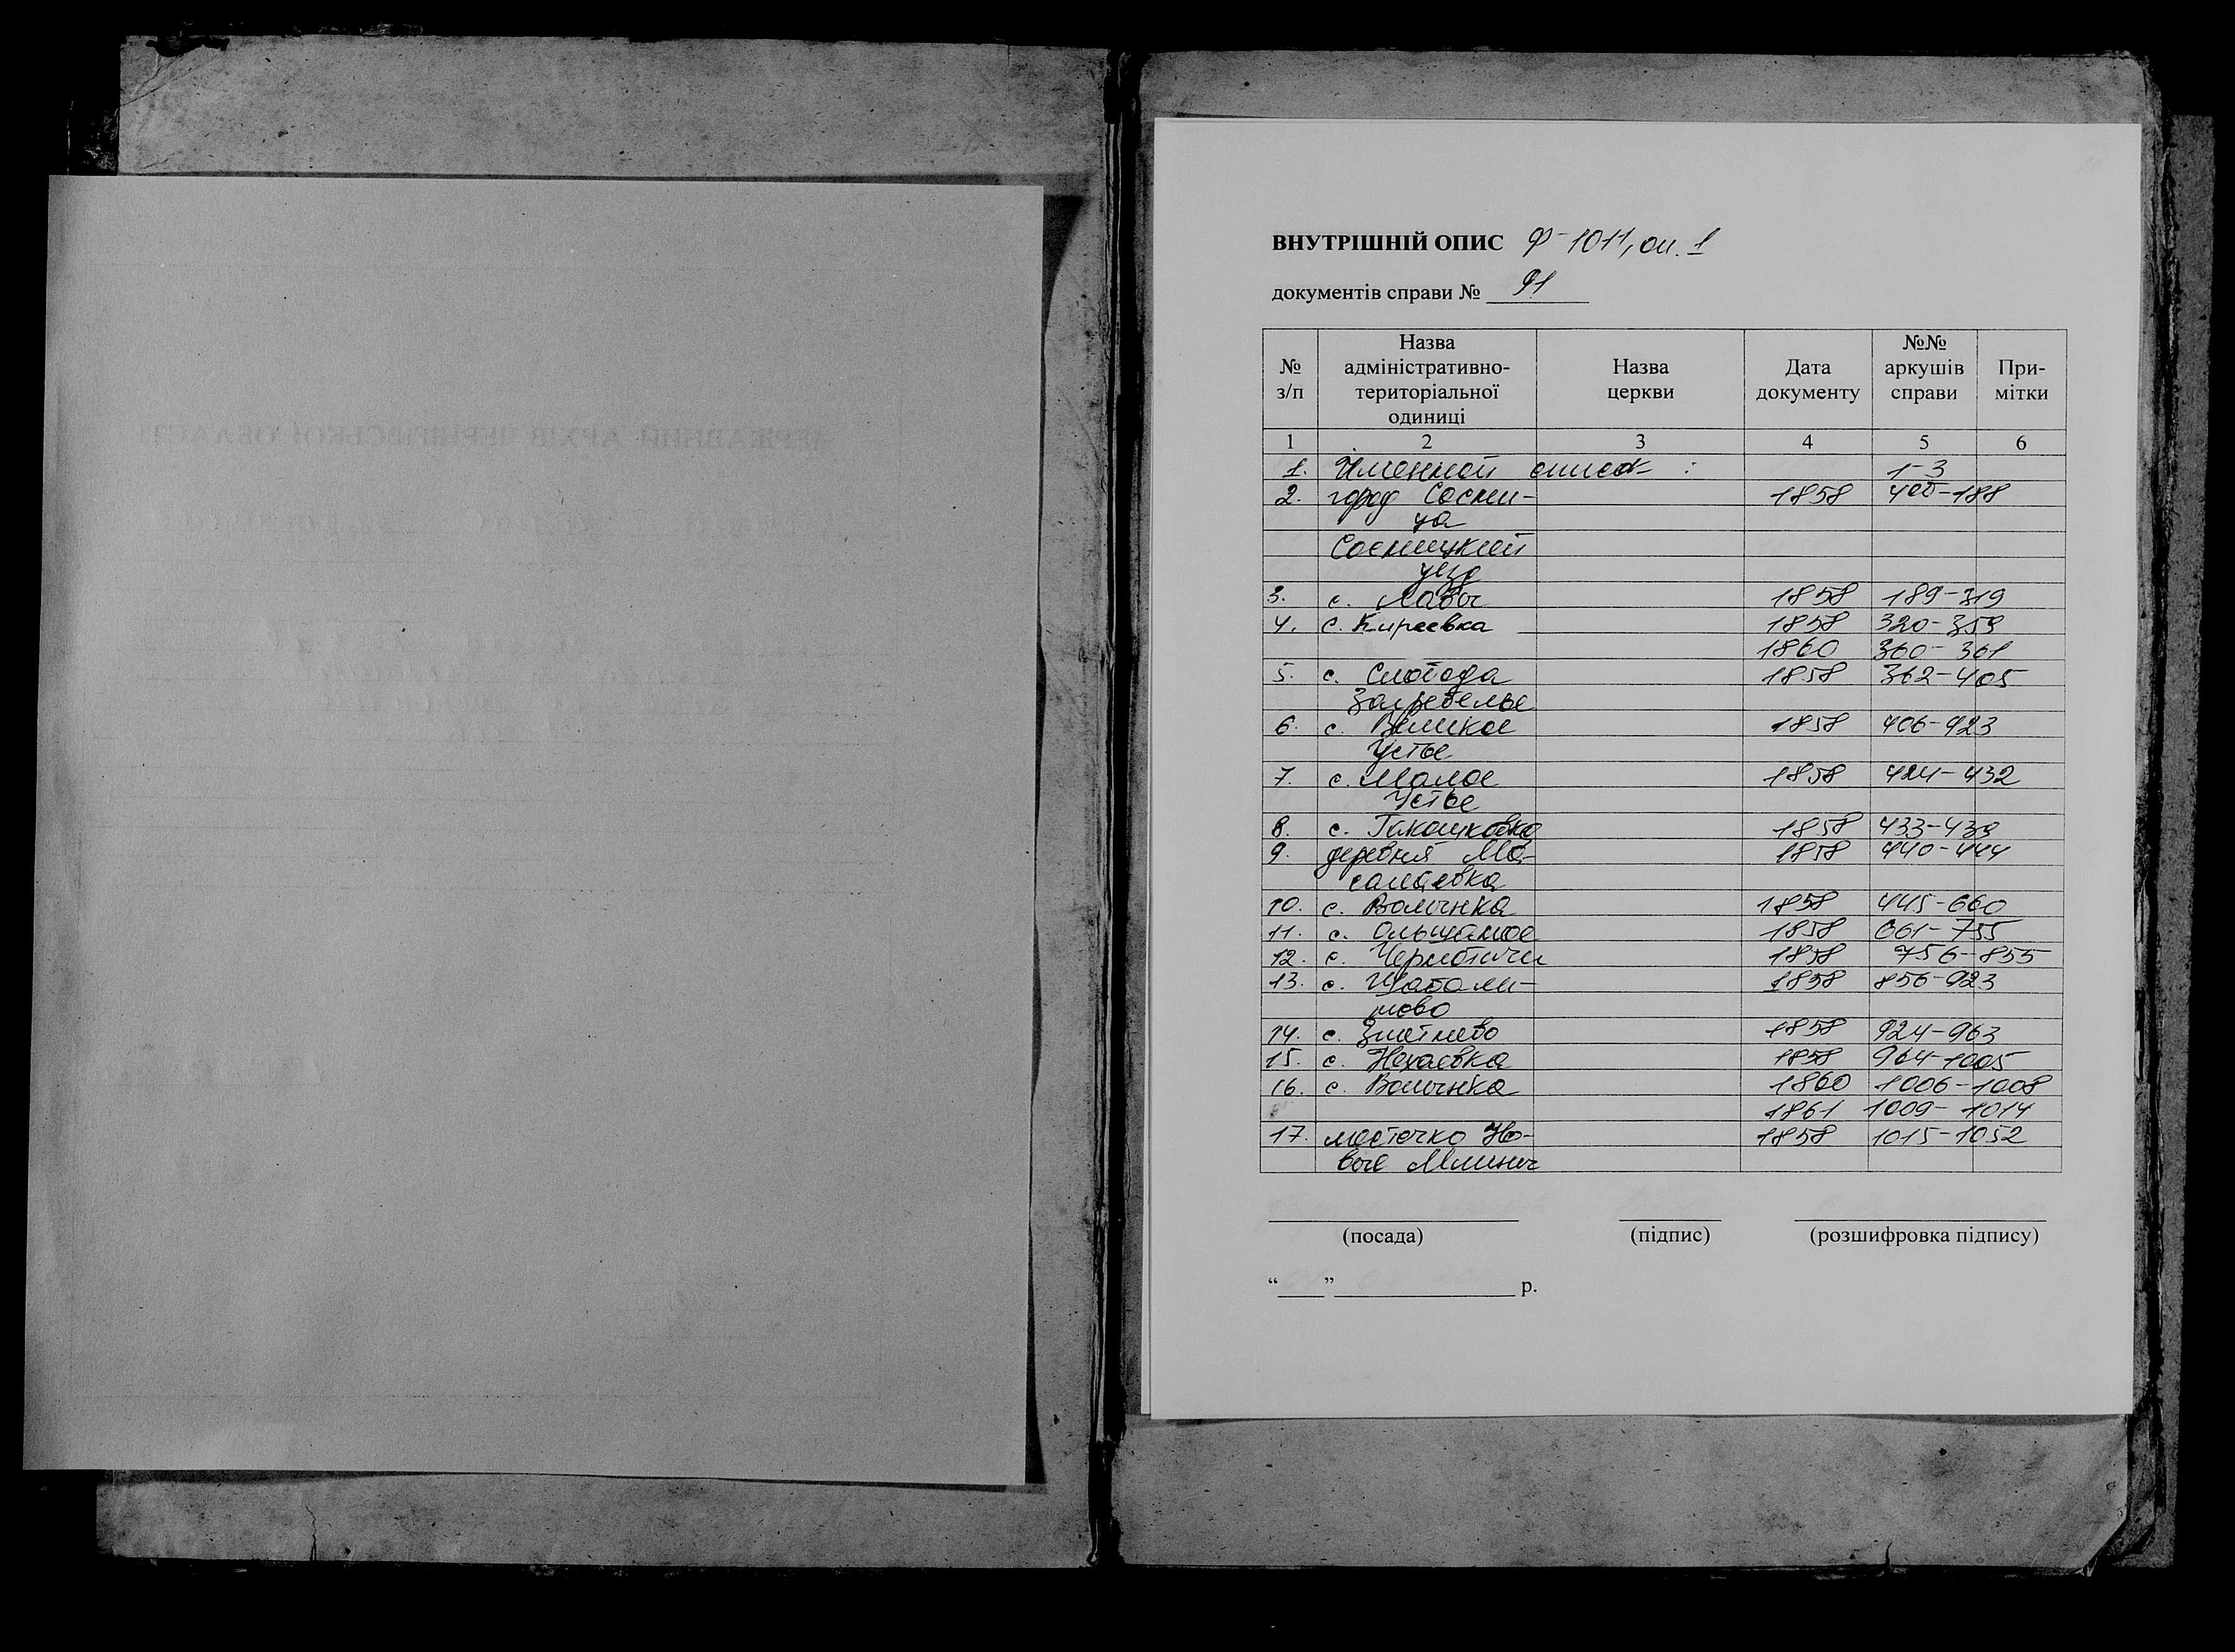 ВНУТРІШНІЙ ОПИС Ф-1011, оп. 1
документів справи № 91
№ з/п
Назва адміністративно-територіальної одиниці
Назва церкви
Дата документу
№№ аркушів справи
При-мітки
1 2 3 4 5 6
1. Именной список : 1-3
2. город Сосни- 1858 -188
ца
Сосницкий
уезд
3. с. Лавы 1858 189-319
4. с. Киреевка 1858 320-359
1860 360-361
5. с. Слобода 1858 362-405
Загребелье
6. с. Великое 1858 406-423
Устье
7. с. Малое 1858 424-432
Устье
8. с. 1858 433-439
9. деревня Ма- 1858 440-444
саловка
10. с. Волынка 1858 445-660
11. с. Ольшаное 1858 661-755
12. с. Чернотичи 1858 756-855
13. с. Шабали- 1858 856-923
ново
14. с. Змётнево 1858 924-963
15. с. Нехаевка 1858 964-1005
16. с. Волынка 1860 1006-1008
1861 1009-1014
17. местечко Но- 1858 1015-1052
вые Млины
(посада) (підпис) (розшифровка підпису)
“____”________________ р.